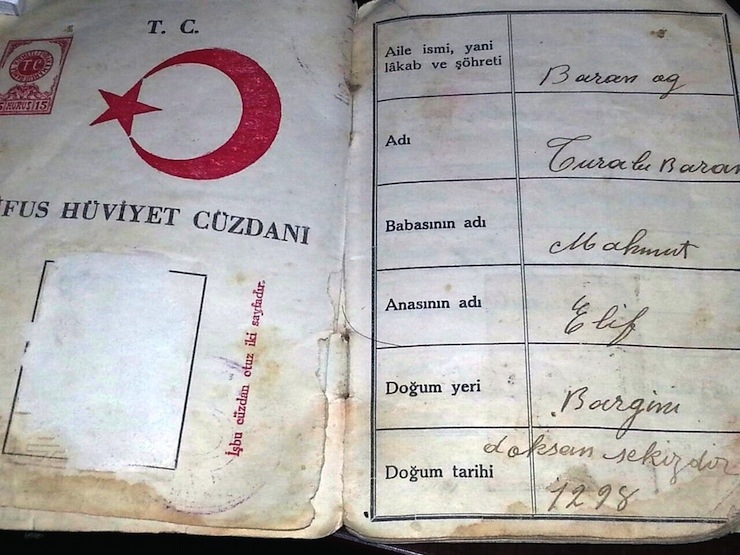 T. C.
T C
KURUŞ 15
FUS HÜVİYET CÜZDANI
İşbu cüzdan otuz iki sayfadır.
Aile ismi, yani
lâkab ve şöhreti
Baran og
Adı
Turalu Baran
Babasının adı
Mahmut
Anasının adı
Elif
Doğum yeri
Bargini
Doğum tarihi
doksan sekizdir
1298